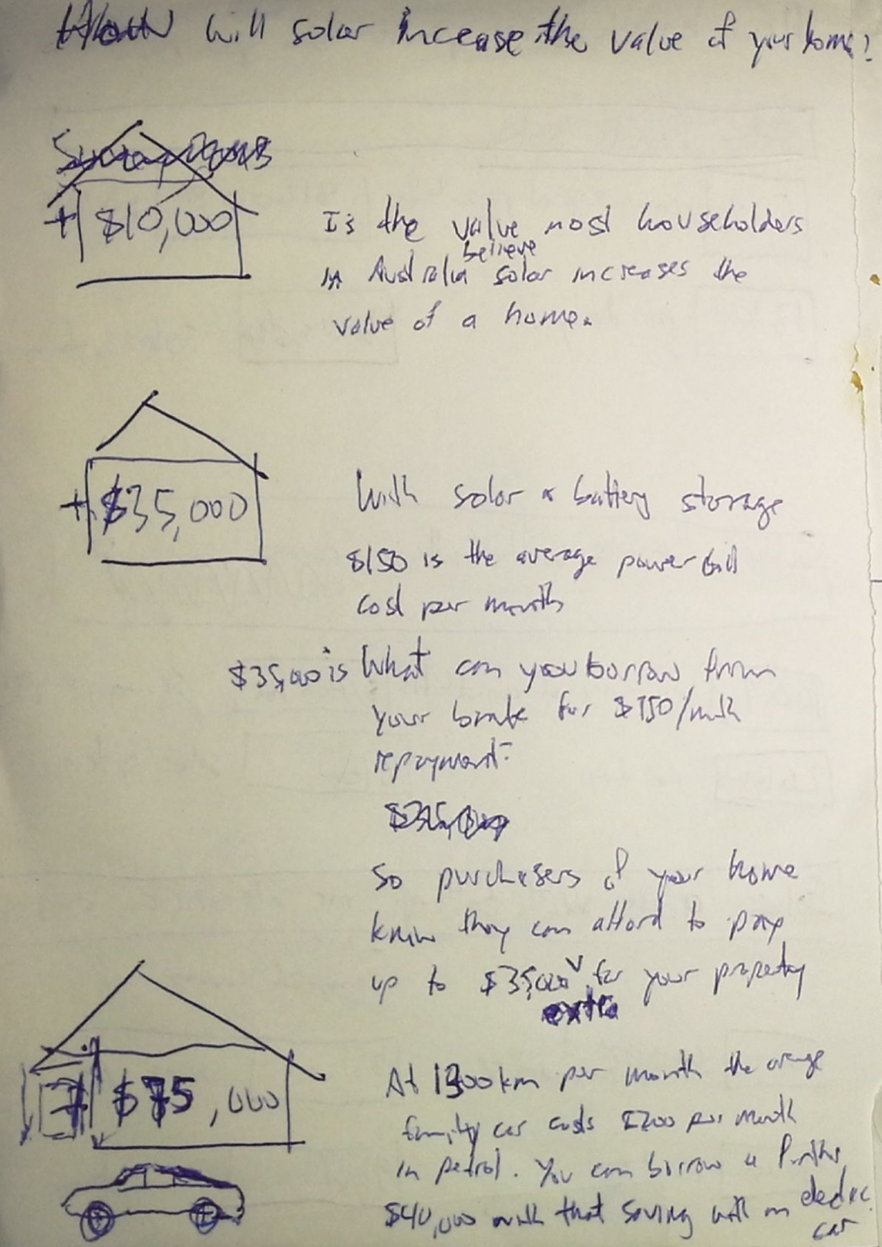 How will solar increase the value of your home?
+ $10,000
Is the value most householders
believe
in Australia solar increases the
value of a home.
+ $35,000
With solar & battery storage
$150 is the average power bill
cost per month
$35,000 is What can you borrow from
your bank for $150/mth
repayment
So purchasers of your home
know they can afford to pay
up to $35,000 for your property
extra
+ $75,000
At 1300km per month the average
family car costs $200 per month
in petrol. You can borrow a further
$40,000 with that saving with an electric
car